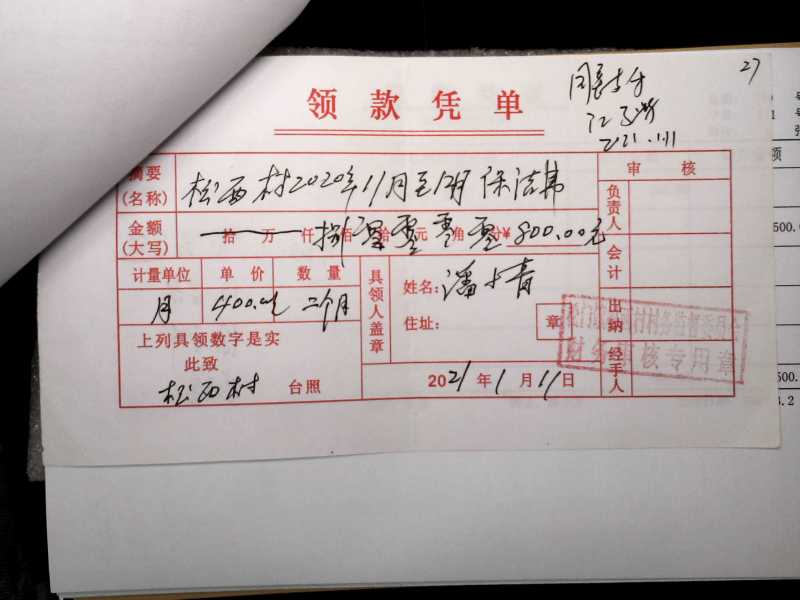 27
同意支付
2021.1.11
领款凭单
摘要(名称) 松西村2020年11月至12月保洁费
审核
金额(大写) 拾万仟捌佰零拾零元零角零分¥800.00元
负责人
会计
出纳
经手人
计量单位 单价 数量
月 400.00元 二个月
具领人盖章
姓名:潘
住址: 章
上列具领数字是实
此致
松西村 台照
2021年1月11日
村村务监督委员会
财务审核专用章
额
500.0
500.
3.2